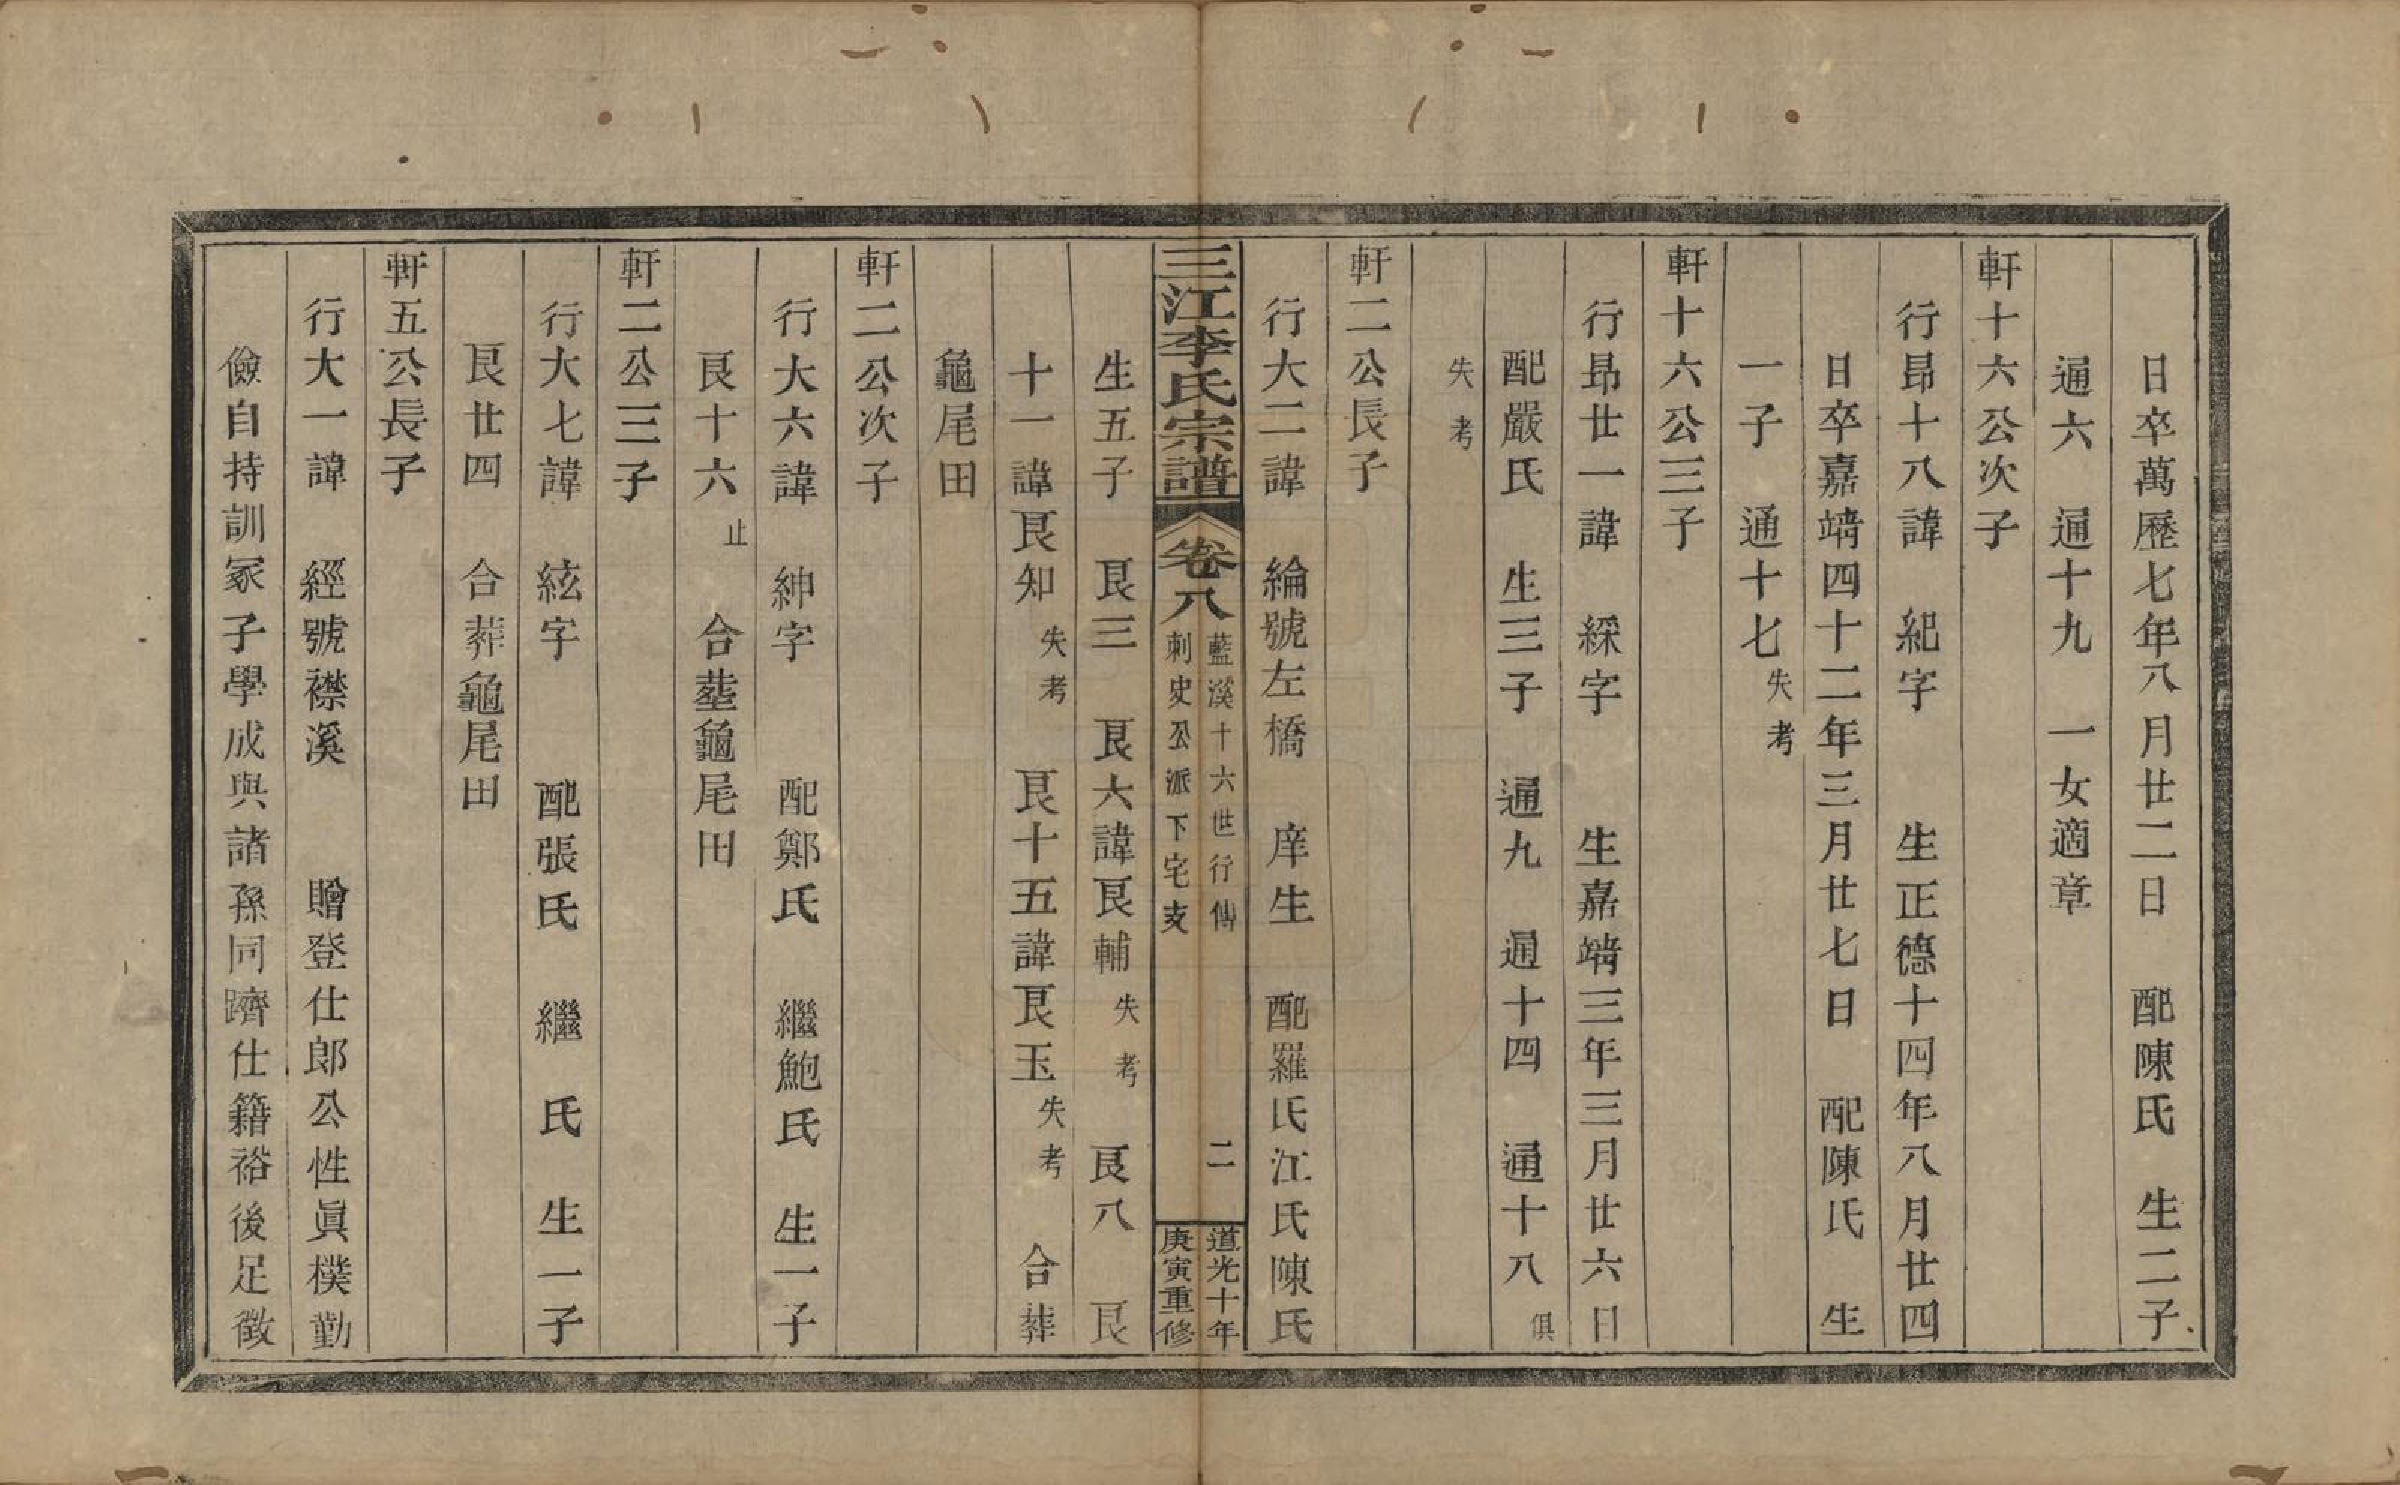 日卒萬歷七年八月廿二日　配陳氏　生二子
通六　通十九　一女適章
軒十六公次子
行昻十八諱　紀字　　生正德十四年八月廿四
日卒嘉靖四十二年三月廿七日　配陳氏　生
一子　通十七失考
軒十六公三子
行昻廿一諱　綵字　　生嘉靖三年三月廿六日
配嚴氏　生三子　通九　通十四　通十八俱
失考
軒二公長子
行大二諱　綸號左橋　庠生　配羅氏江氏陳氏
三江李氏宗譜　卷八　藍溪十六世行傳　二　道光十年
刺史公派下宅支　庚寅重修
生五子　艮三　艮六諱艮輔失考　艮八　艮
十一諱艮知失考　艮十五諱艮玉失考　合葬
龜尾田
軒二公次子
行大六諱　紳字　　配鄭氏　繼鮑氏　生一子
艮十六止　合塟龜尾田
軒二公三子
行大七諱　絃字　　配張氏　繼　氏　生一子
艮廿四　合葬龜尾田
軒五公長子
行大一諱　經號襟溪　　贈登仕郎公性眞樸勤
儉自持訓冢子學成與諸孫同躋仕籍裕後足徵